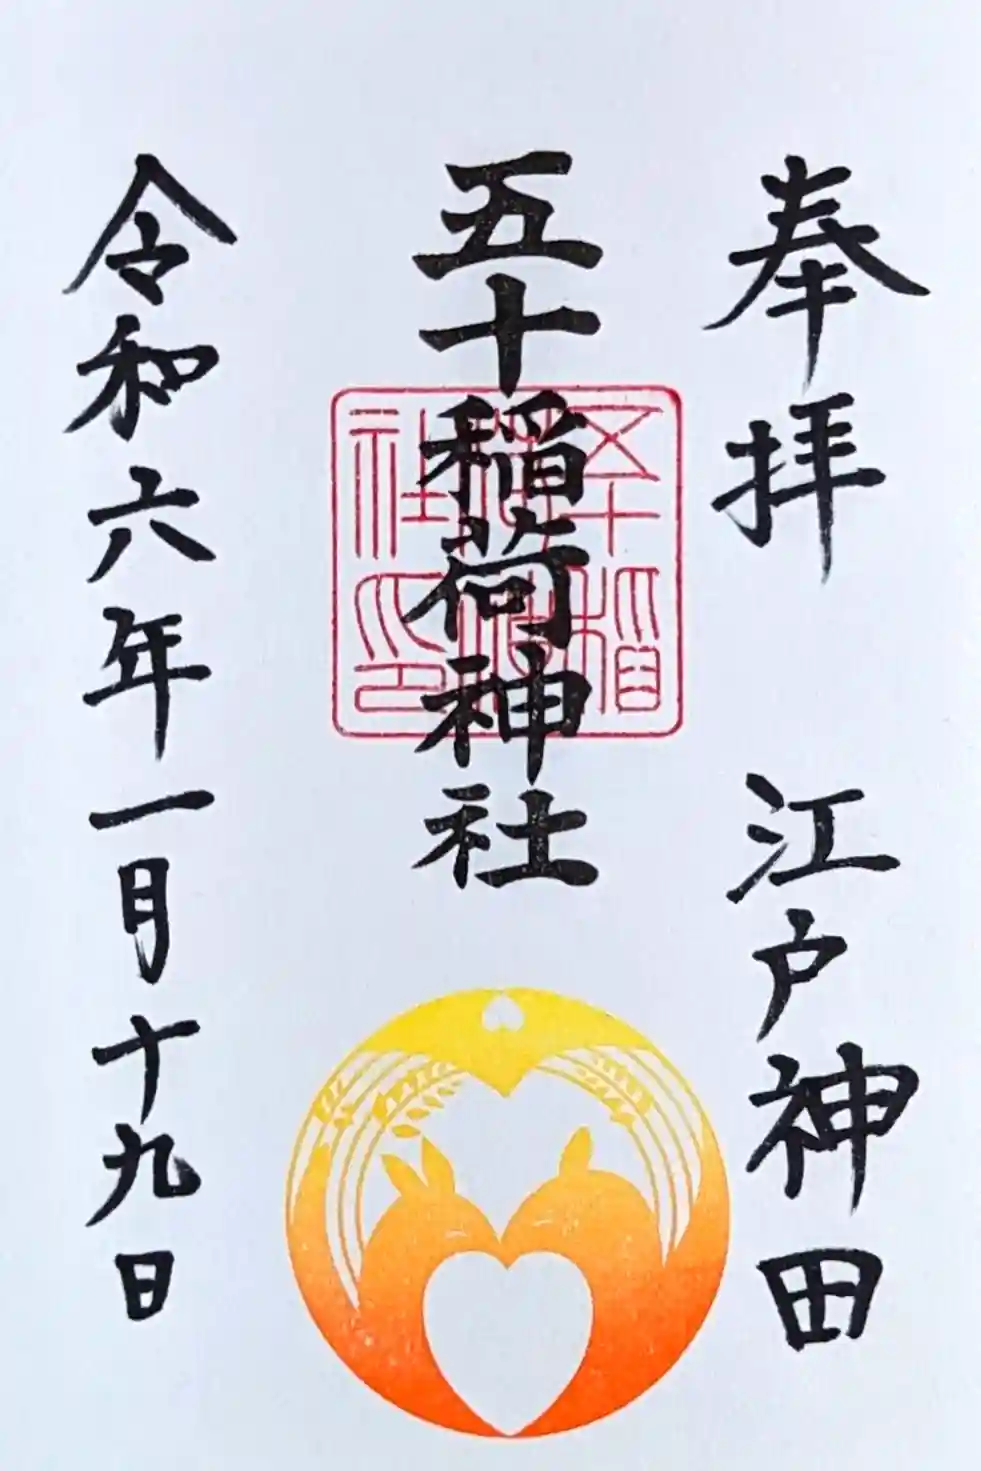 奉拝 江戸神田
五十稲荷神社
五十稲荷神社印
令和六年一月十九日